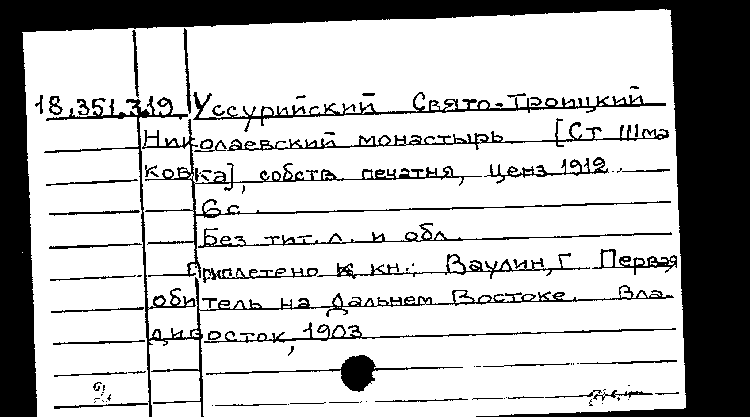 18.351.319 Уссурийский Свято-Троицкий
Николаевский монастырь [Ст Шма
ковка], собств. печатня, ценз 1912.
6 с.
Без тит. л. и обл.
Приплетено к кн.: Ваулин, Г Первая
обитель на Дальнем Востоке. Вла-
дивосток, 1903